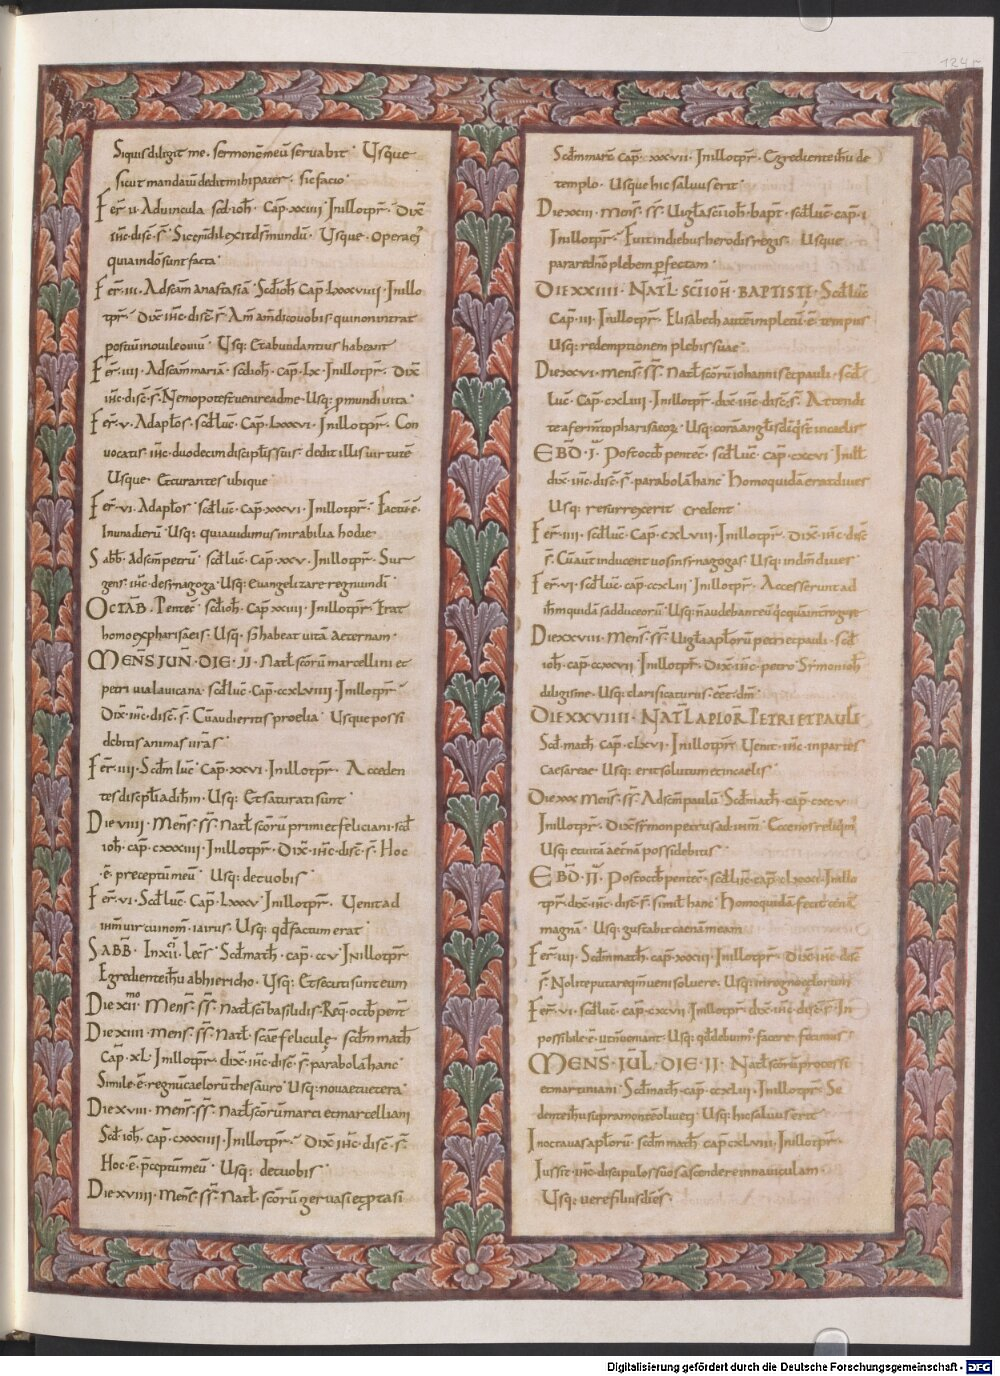 124r
Siquis diligit me · sermonē meū servabit · Usque
sicut mandatū dedit mihi pater · sic facio ·
Fer̄ · ii · Ad vincula · scd̄ ioh̄ · Cap̄ · xxviiii · In illo tpr̄ · Dix̄
ih̄c · disc̄ · s̄ · Sic enī dīlexit ds̄ mundū · Usque · opera eī
quia in dō sunt facta ·
Fer̄ · iii · Ad scām anastasiā · Scd̄ ioh̄ Cap̄ · Lxxxviiii · In illo
tpr̄ · Dix̄ ih̄c · disc̄ s̄ · Am̄ am̄ dico vobis · qui non intrat
p ostiū in ovile oviū · Usq: Et abundantius habeant
Fer̄ · iiii · Ad scām mariā · scd̄ ioh̄ · cap̄ · Lx · In illo tpr̄ · Dix̄
ih̄c · disc̄ · s̄ · Nemo potest venire ad me · Usq: p mundi vita ·
Fer̄ · v · Ad ap̄los · scd̄ luc̄ · Cap̄ · Lxxxvi · In illo tpr̄ · Con
vocatis · ih̄c · duodecim discip̄lis suis · dedit illis virtutē
Usque · Et curantes ubique
Fer̄ · vi · Ad ap̄los · scd̄ luc̄ · Cap̄ · xxxvi · In illo tpr̄ · Factū ē ·
In una dierū · Usq: quia vidimus mirabilia hodie ·
Sabb̄ · Ad scm̄ petrū · scd̄ luc̄ · Cap̄ · xxv · In illo tpr̄ · Sur
gens · ih̄c · de synagoga · Usq: Evangelizare regnum dī
OCTAB̄ · Pentec̄ · scd̄ ioh̄ · Cap̄ · xxiiii · In illo tpr̄ · Erat
homo ex pharisaeis · Usq: S; habeat vitā aeternam ·
MENS̄ JUN̄ · DIE · II · Natl̄ scōrū marcellini et
petri via lavicana · scd̄ luc̄ · Cap̄ · ccxlviiii · In illo tpr̄
Dix̄ ih̄c · disc̄ · s̄ · Cū audieritis proelia · Usque possi
debitis animas vr̄as ·
Fer̄ · iiii · Scdm̄ luc̄ · Cap̄ · xxvi · In illo tpr̄ · Acceden
tes discip̄li ad ih̄m · Usq: Et saturati sunt ·
Die viiii · Mens̄ · ss̄ · Natl̄ scōrū primi et feliciani · scd̄
ioh̄ · cap̄ · cxxxiiii · In illo tpr̄ · Dix̄ · ih̄c · disc̄ · s̄ · Hoc
· ē · preceptū meū · Usq: det vobis ·
Fer̄ · vi · Scd̄ luc̄ · Cap̄ · Lxxxv · In illo tpr̄ · Venit ad
ih̄m vir cui nom̄ · iairus · Usq: qd̄ factum erat
SABB̄ · In xii · lec̄ · Scd̄ math̄ · cap̄ · ccv · In illo tpr̄
Egrediente ih̄u ab hiericho · Usq: Et secuti sunt eum
Die xii mo · Mens̄ · ss̄ · Natl̄ scī basilidis · Req̄ · octb̄ pent̄
Die xiiii · Mens̄ · ss̄ · Natl̄ · scāe felicule · scdm̄ math̄
Cap̄ · xl · In illo tpr̄ · dix̄ · ih̄c · disc̄ · s̄ · parabolā hanc ·
Simile · ē · regnū caelorū thesauro · Usq: nova et vetera ·
Die xviii · mens̄ · ss̄ · Natl̄ scōrū marci et marcelliani
Scd̄ · ioh̄ · cap̄ · cxxxiiii · In illo tpr̄ · Dix̄ ih̄c · disc̄ · s̄ ·
Hoc · ē · p̄ceptū meū · Usq: det vobis ·
Die xviiii · Mens̄ · ss̄ · Natl̄ · scōrū gervasi et ptasi
Scdm̄ marc̄ · cap̄ · xxxvii · In illo tpr̄ · Egrediente ih̄u de
templo · Usque hic salvus erit ·
Die xxiii · Mens̄ · ss̄ · Vigl̄a scī ioh̄ · bapt̄ · scd̄ luc̄ · cap̄ · i
In illo tpr̄ · Fuit in diebus herodis regis · Usque
parare dnō plebem pfectam ·
DIE XXIIII · NATL̄ · SCĪ IOH̄ · BAPTISTE · Scd̄ luc̄
Cap̄ · iii · In illo tpr̄ · Elisabeth autē impletū · ē · tempus
Usq: redemptionem plebis suae ·
Die xxvi · mens̄ · ss̄ · Natl̄ scōrū iohannis et pauli · scd̄
luc̄ · Cap̄ · cxliiii · In illo tpr̄ · dix̄ · ih̄c · disc̄ · s̄ · Attendi
te a fermto pharisaeoꝝ · Usq: corā anglīs dī q̄ st̄ in caelis
EBD̄ · I · Post octb̄ pentec̄ · scd̄ luc̄ · cap̄ · cxcvi · In ill̄
dix̄ · ih̄c · disc̄ · s̄ · parabolā hanc · Homo quidā erat dives
Usq: resurrexerit credent ·
Fer̄ · iiii · scd̄ luc̄ · Cap̄ · cxlviii · In illo tpr̄ · Dix̄ · ih̄c · disc̄
· s̄ · Cū autē inducent vos in synagogas · Usq: in dm̄ dives
Fer̄ · vi · scd̄ luc̄ · cap̄ · ccxliii · In illo tpr̄ · Accesserunt ad
ih̄m quidā sadduceorū · Usq: n̄ audebant eū q̄cquā introgare
Die xxviii · Mens̄ · ss̄ · Vigl̄a ap̄lorū petri et pauli · scd̄
ioh̄ · cap̄ · ccxxvii · In illo tpr̄ · Dix̄ · ih̄c · petro · Symon ioh̄
diligis me · Usq: clarificaturus · eēt · dm̄ ·
DIE XXVIIII · NATL̄ APLOR̄ PETRI ET PAULI
Scd̄ · math̄ · Cap̄ · clxvi · In illo tpr̄ · Venit · ih̄c · in partes
Caesareae · Usq: erit solutum et in caelis ·
Die xxx mens̄ · ss̄ · Ad scm̄ paulū · Scd̄ math̄ · cap̄ · cxcv
In illo tpr̄ · Dix̄ symon petrus ad ih̄m · Ecce nos reliq̄m;
Usq: et vitā aet̄nā possidebitis ·
EBD̄ · II · Post octb̄ pentec̄ · scd̄ luc̄ · cap̄ · clxxxi · In illo
tpr̄ · dix̄ · ih̄c · disc̄ · s̄ · simil̄ hanc · Homo quidā fecit cenā
magnā · Usq: gustabit caenam eam ·
Fer̄ · iiii · Scdm̄ math̄ · cap̄ · xxxiii · In illo tpr̄ · Dix̄ · ih̄c · disc̄
· s̄ · Nolite putare qm̄ veni solvere · Usq: in regno caelorum
Fer̄ · vi · scd̄ luc̄ · cap̄ · cxcvii · In illo tpr̄ · dix̄ · ih̄c · disc̄ · s̄ · In
possibile · ē · ut n̄ veniant · Usq: qd̄ debuim; · facere · fecimus ·
MENS̄ · JUL̄ · DIE · II · Natl̄ scōrū processi
et martiniani · Scd̄ math̄ · cap̄ · ccxlii · In illo tpr̄ · Se
dente ih̄u supra montē oliveti · Usq: hic salvus erit ·
In octavas ap̄lorū · scdm̄ math̄ · cap̄ cxlvii · In illo tpr̄ ·
Iussit · ih̄c · discipulos suos ascendere in naviculam ·
Usq: vere filius dī es ·
Digitalisierung gefördert durch die Deutsche Forschungsgemeinschaft - DFG